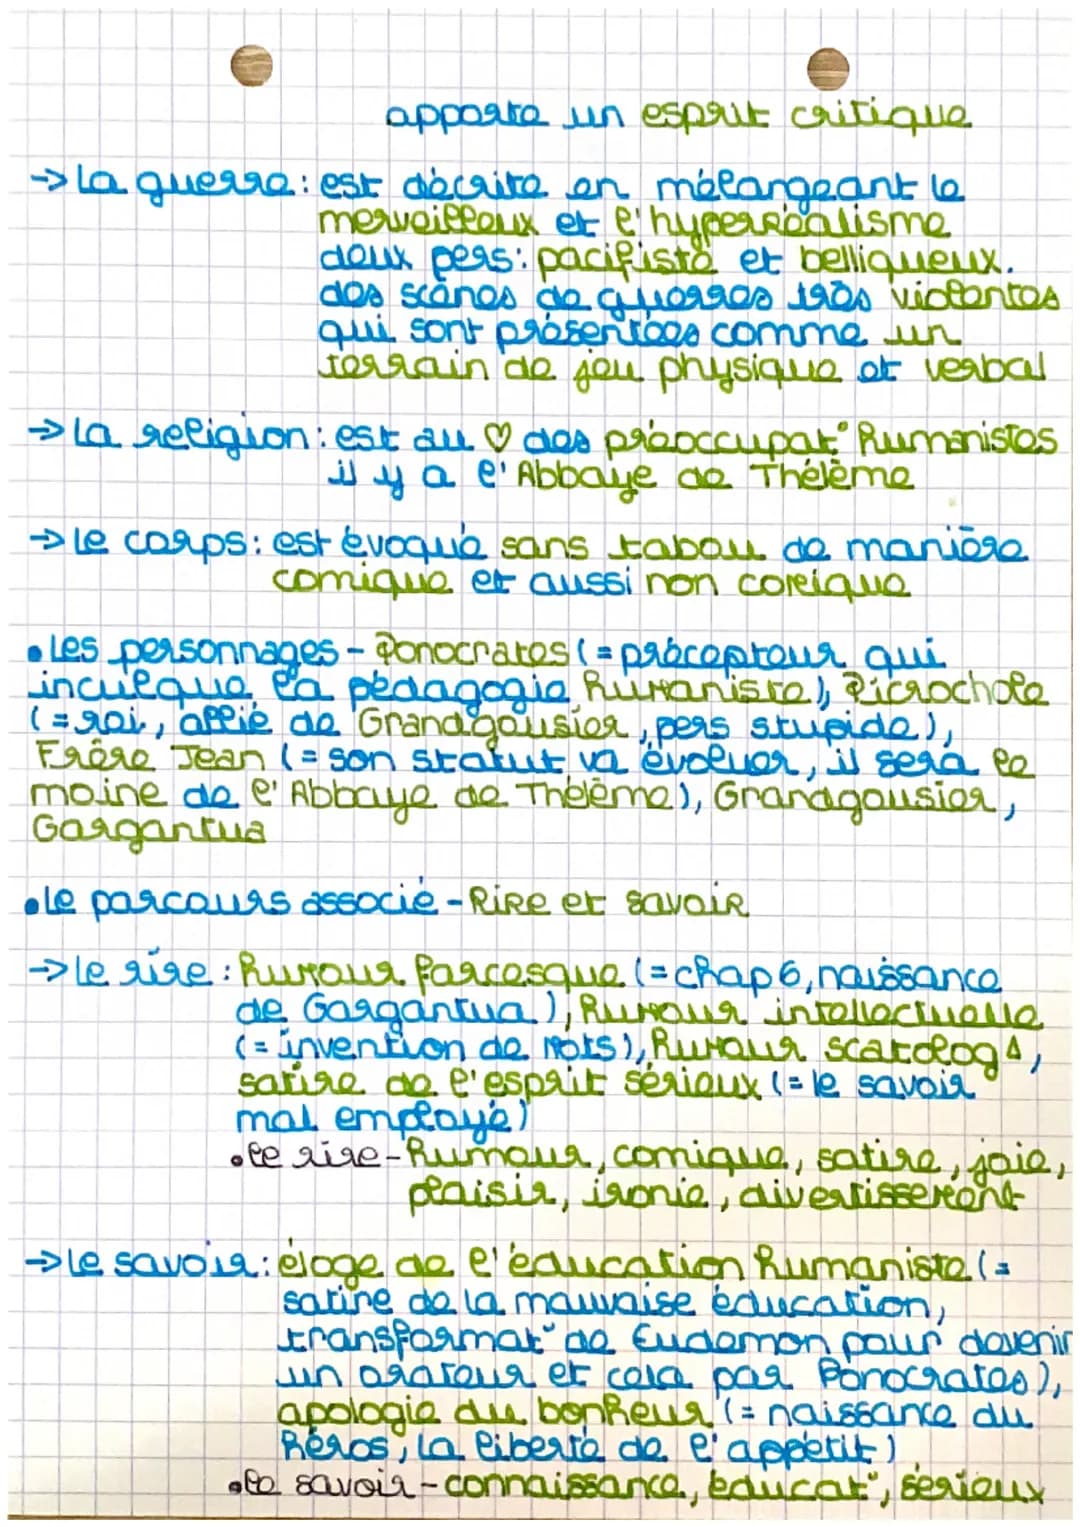 apporte un esprit critique
→ La guerre: est décrite en mélangeant le
merveilleux et l'hyperréalisme
deux pers: pacifiste et belliqueux.
des scènes de guerres très violentes
qui sont présentées comme un
terrain de jeu physique et verbal
→ La religion: est au ♡ des préoccupat° humanistes
il y a l'Abbaye de Thélème
→ Le corps: est évoqué sans tabou de manière
comique et aussi non comique
• Les personnages - Ponocrates (= précepteur qui
inculque la pédagogie humaniste), Picrochole
(= roi, allié de Grandgousier, pers stupide),
Frère Jean (= son statut va évoluer, il sera le
moine de l'Abbaye de Thélème), Grandgousier,
Gargantua
• Le parcours associé - Rire et savoir
→ Le rire: humour farcesque (= chap 6, naissance
de Gargantua), humour intellectuelle
(= invention de mots), humour scatolog Δ,
satire de l'esprit sérieux (= le savoir
mal employé)
• le rire - humour, comique, satire, joie,
plaisir, ironie, divertissement
→ Le savoir: éloge de l'éducation humaniste (=
satire de la mauvaise éducation,
transformat° de Eudemon pour devenir
un orateur et cela par Ponocrates),
apologie du bonheur (= naissance du
héros, la liberté de l'appétit)
• le savoir - connaissance, éducat°, sérieux